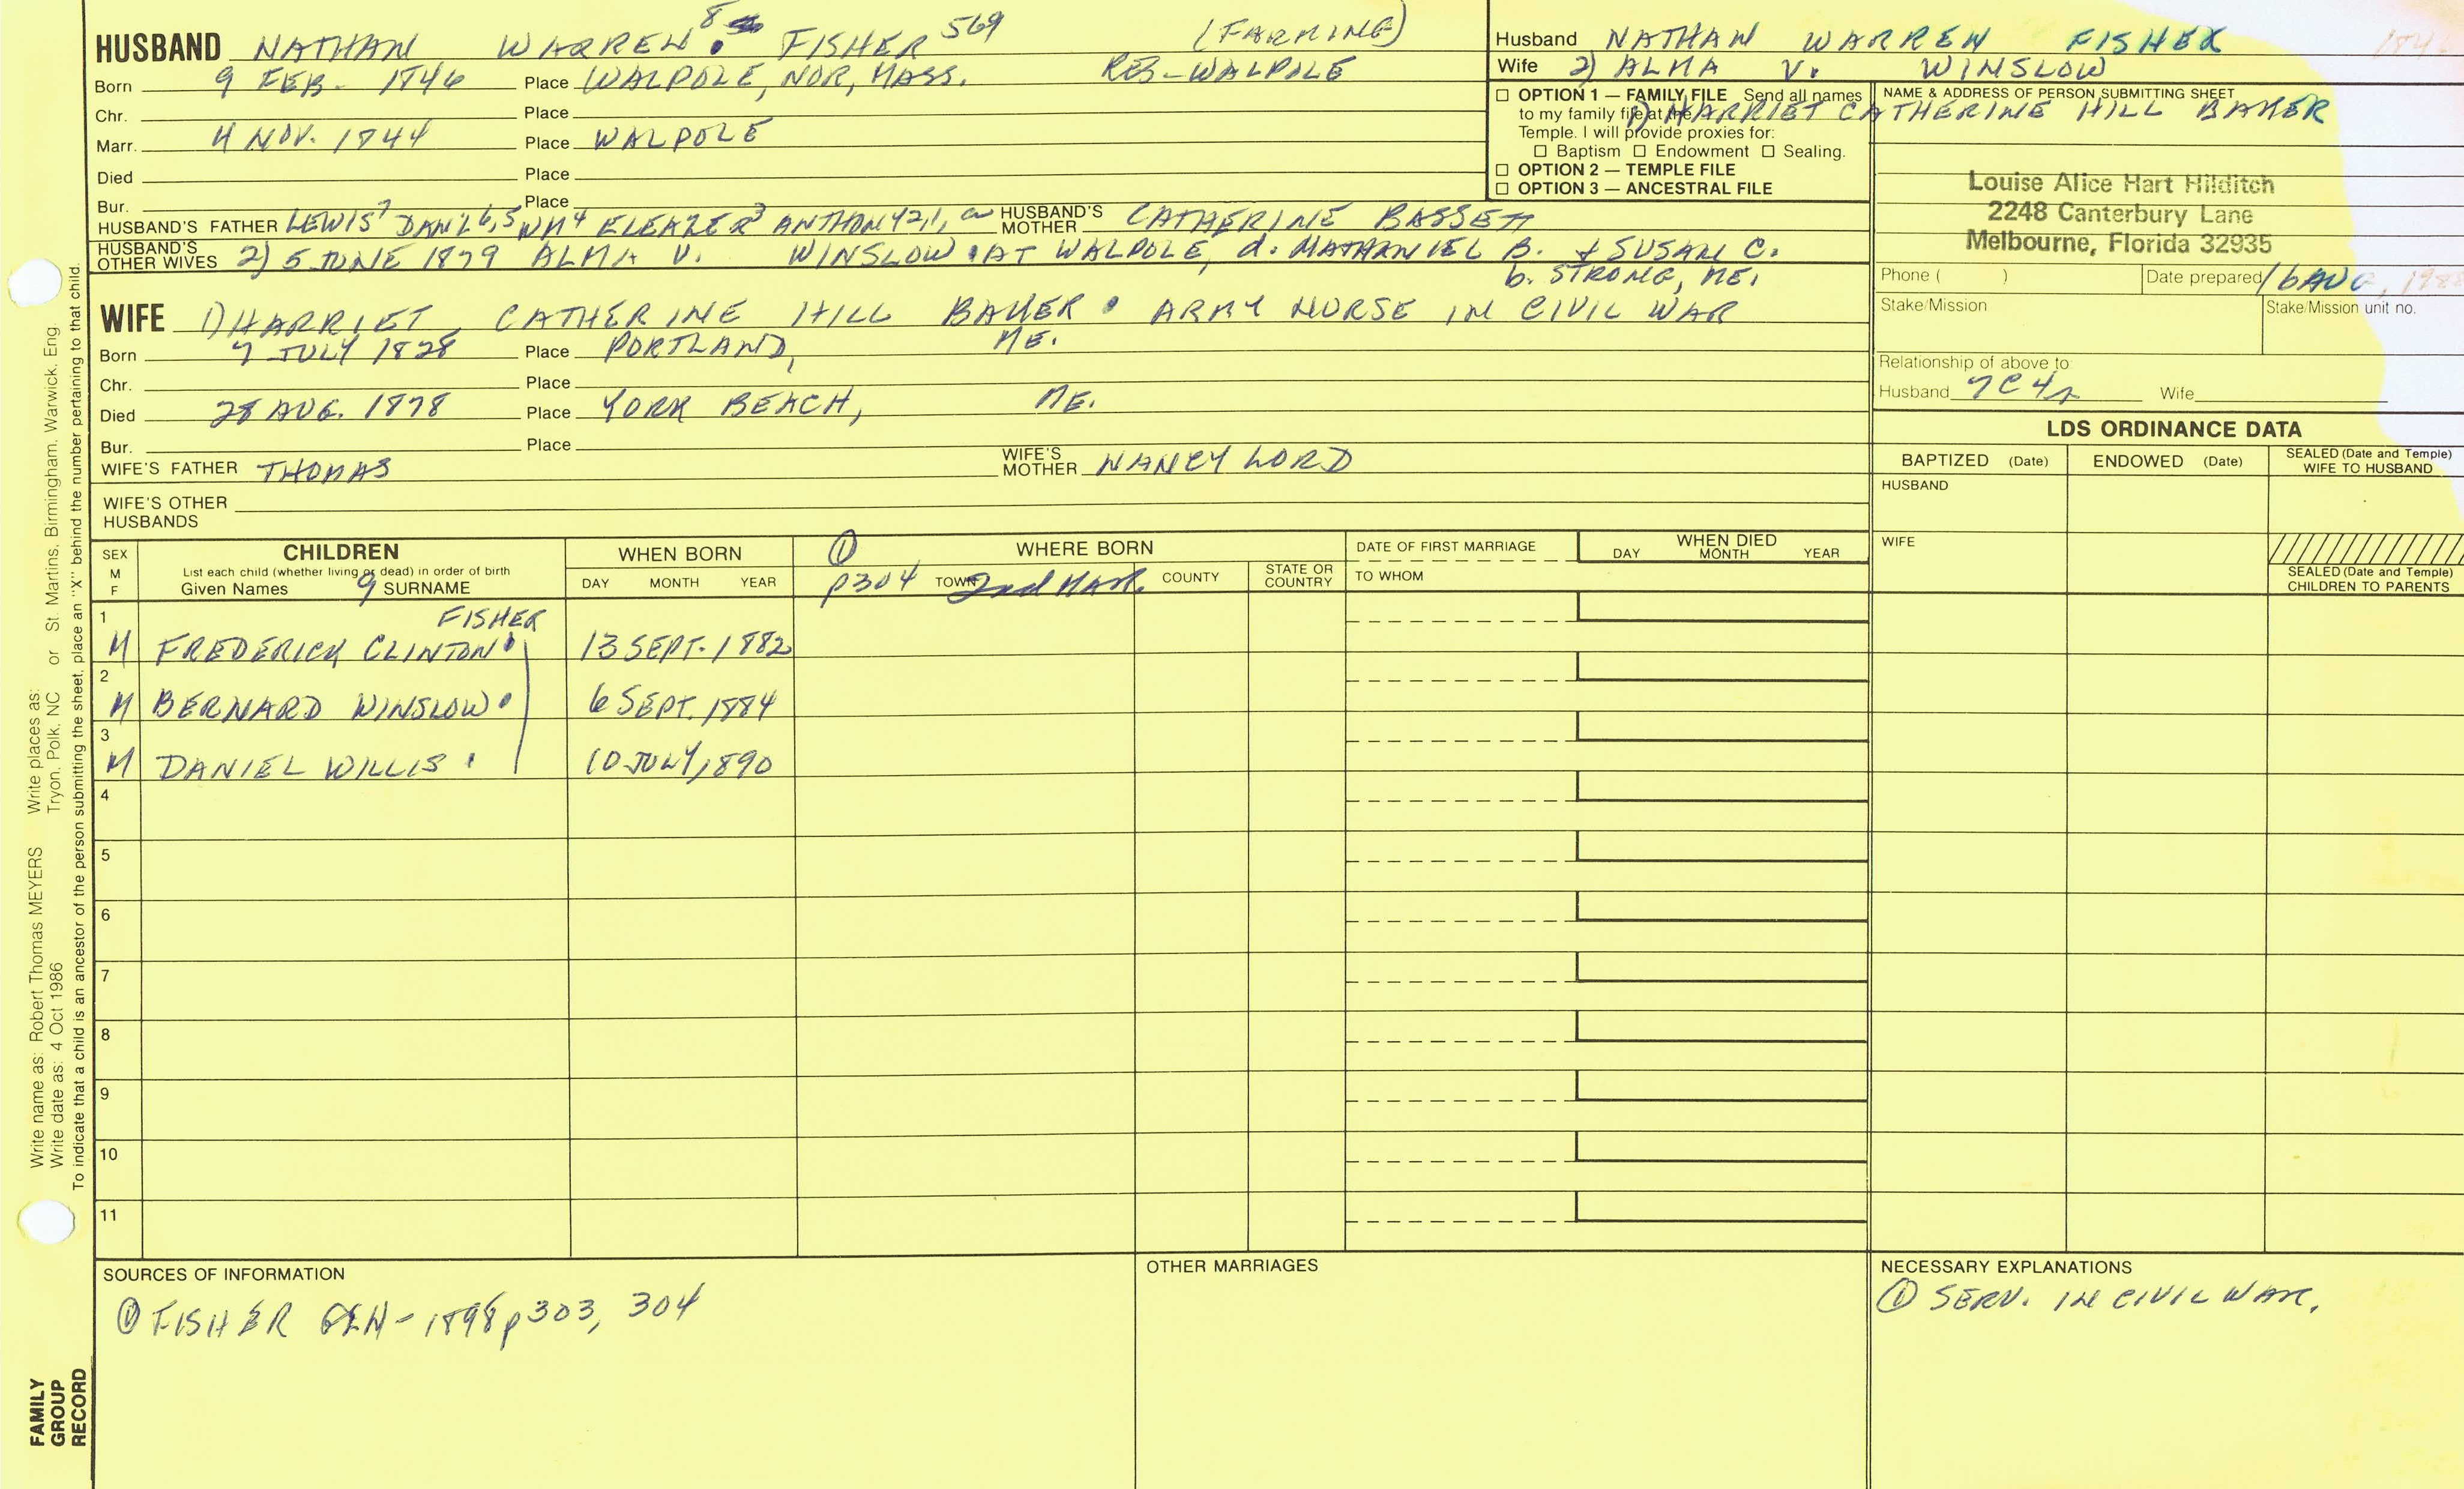 HUSBAND NATHAN WARREN 8 FISHER 569 (FARMING)
Born 9 FEB. 1846 Place WALPOLE, NOR, MASS. RES-WALPOLE
Chr. Place
Marr. 4 NOV. 1844 Place WALPOLE
Died Place
Bur. Place
HUSBAND'S FATHER LEWIS7 DAN'L6,5 WM4 ELEAZER3 ANTHONY2,1, HUSBAND'S MOTHER CATHERINE BASSETT
HUSBAND'S OTHER WIVES 2) 5 JUNE 1879 ALMA V. WINSLOW AT WALPOLE, d. NATHANIEL B. & SUSAN C.
b. STRONG, ME.
WIFE 1) HARRIET CATHERINE HILL BAKER ARMY NURSE IN CIVIL WAR
Born 7 JULY 1828 Place PORTLAND, ME.
Chr. Place
Died 28 AUG. 1878 Place YORK BEACH, ME.
Bur. Place
WIFE'S FATHER THOMAS WIFE'S MOTHER NANCY LORD
WIFE'S OTHER HUSBANDS
Husband NATHAN WARREN FISHER
Wife 2) ALMA V. WINSLOW
1) HARRIET CATHERINE HILL BAKER
☐ OPTION 1 — FAMILY FILE Send all names
to my family file at the
Temple. I will provide proxies for:
☐ Baptism ☐ Endowment ☐ Sealing.
☐ OPTION 2 — TEMPLE FILE
☐ OPTION 3 — ANCESTRAL FILE
NAME & ADDRESS OF PERSON SUBMITTING SHEET
Louise Alice Hart Hilditch
2248 Canterbury Lane
Melbourne, Florida 32935
Phone ( ) Date prepared 16 AUG, 1988
Stake/Mission Stake/Mission unit no.
Relationship of above to:
Husband 7C4r Wife
LDS ORDINANCE DATA
BAPTIZED (Date) ENDOWED (Date) SEALED (Date and Temple) WIFE TO HUSBAND
HUSBAND
WIFE
SEALED (Date and Temple)
CHILDREN TO PARENTS
SEX M F
CHILDREN
List each child (whether living or dead) in order of birth
Given Names 9 SURNAME
WHEN BORN
DAY MONTH YEAR
① WHERE BORN
p304 TOWN 2nd MAR. COUNTY STATE OR COUNTRY
DATE OF FIRST MARRIAGE
TO WHOM
WHEN DIED
DAY MONTH YEAR
1 FISHER
M FREDERICK CLINTON 13 SEPT. 1882
2
M BERNARD WINSLOW 6 SEPT. 1884
3
M DANIEL WILLIS 10 JULY 1890
4
5
6
7
8
9
10
11
SOURCES OF INFORMATION
① FISHER GEN-1898 p303, 304
OTHER MARRIAGES
NECESSARY EXPLANATIONS
① SERV. IN CIVIL WAR.
Write name as: Robert Thomas MEYERS Write places as:
Write date as: 4 Oct 1986 Tryon, Polk, NC or St. Martins, Birmingham, Warwick, Eng.
To indicate that a child is an ancestor of the person submitting the sheet, place an "X" behind the number pertaining to that child.
FAMILY
GROUP
RECORD